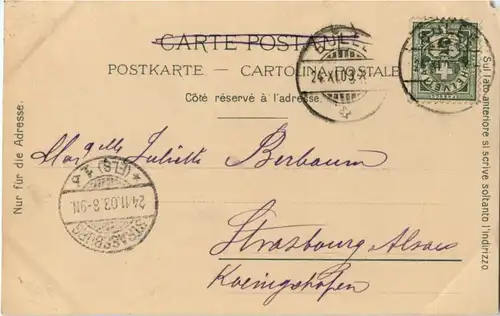 CARTE POSTALE
POSTKARTE — CARTOLINA POSTALE
Côté réservé à l'adresse.
Nur für die Adresse.
Sul lato anteriore si scrive soltanto l'indirizzo.
24.XI.03.
HELVETIA
Juliette Berbaum
STRASSBURG
(ELS) 1.
24.11.03.8-9N.
Strasbourg Alsace
Koenigshofen